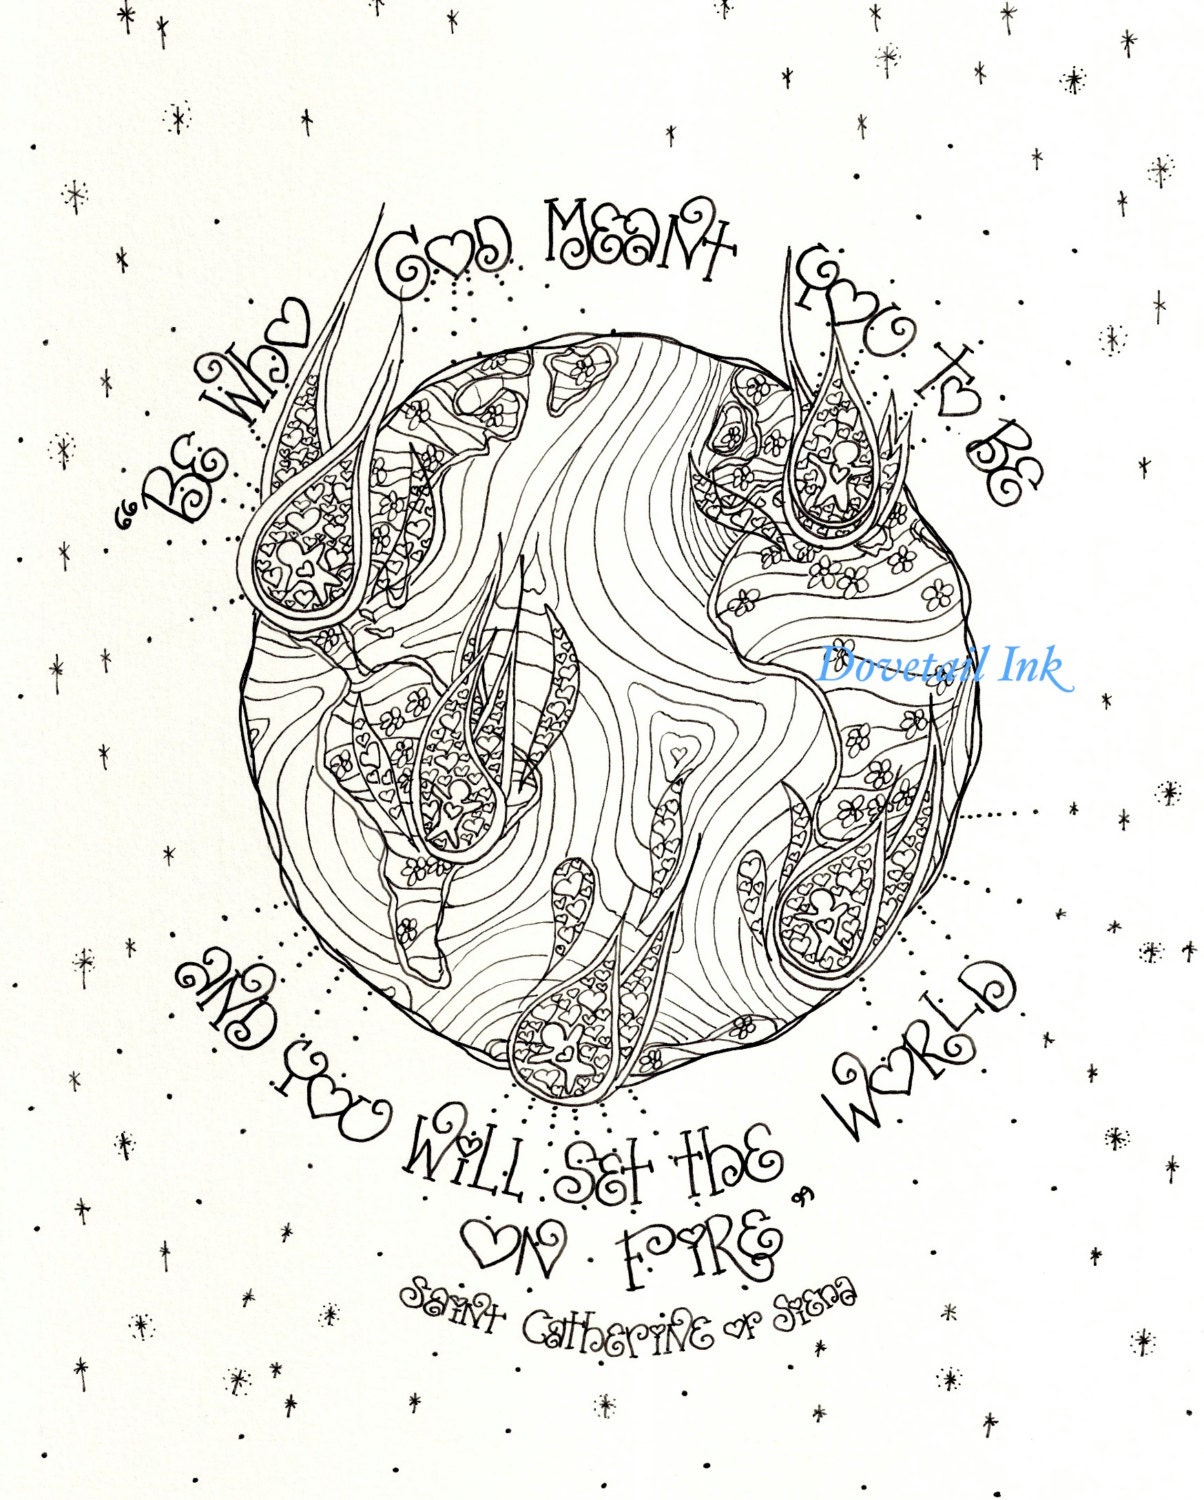 "BE WHO GOD MEANT YOU TO BE
Dovetail Ink
AND YOU WiLL SET THE WORLD
ON FiRE"
SAiNT CATHERiNE OF SiENA